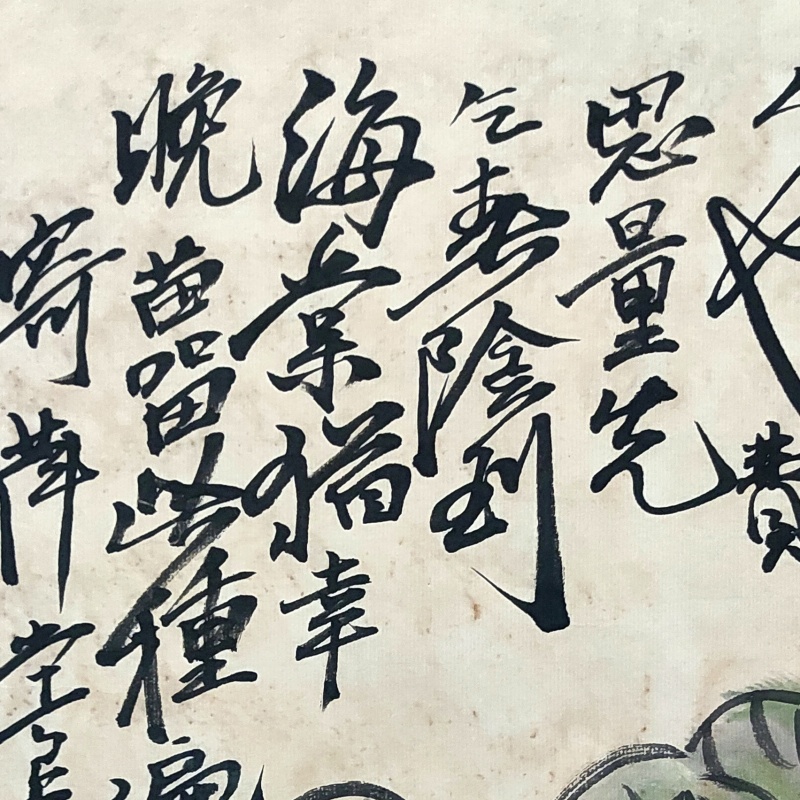 費
思量先
乞春陰到
海棠猶幸
晚苗留此種
寄
堂